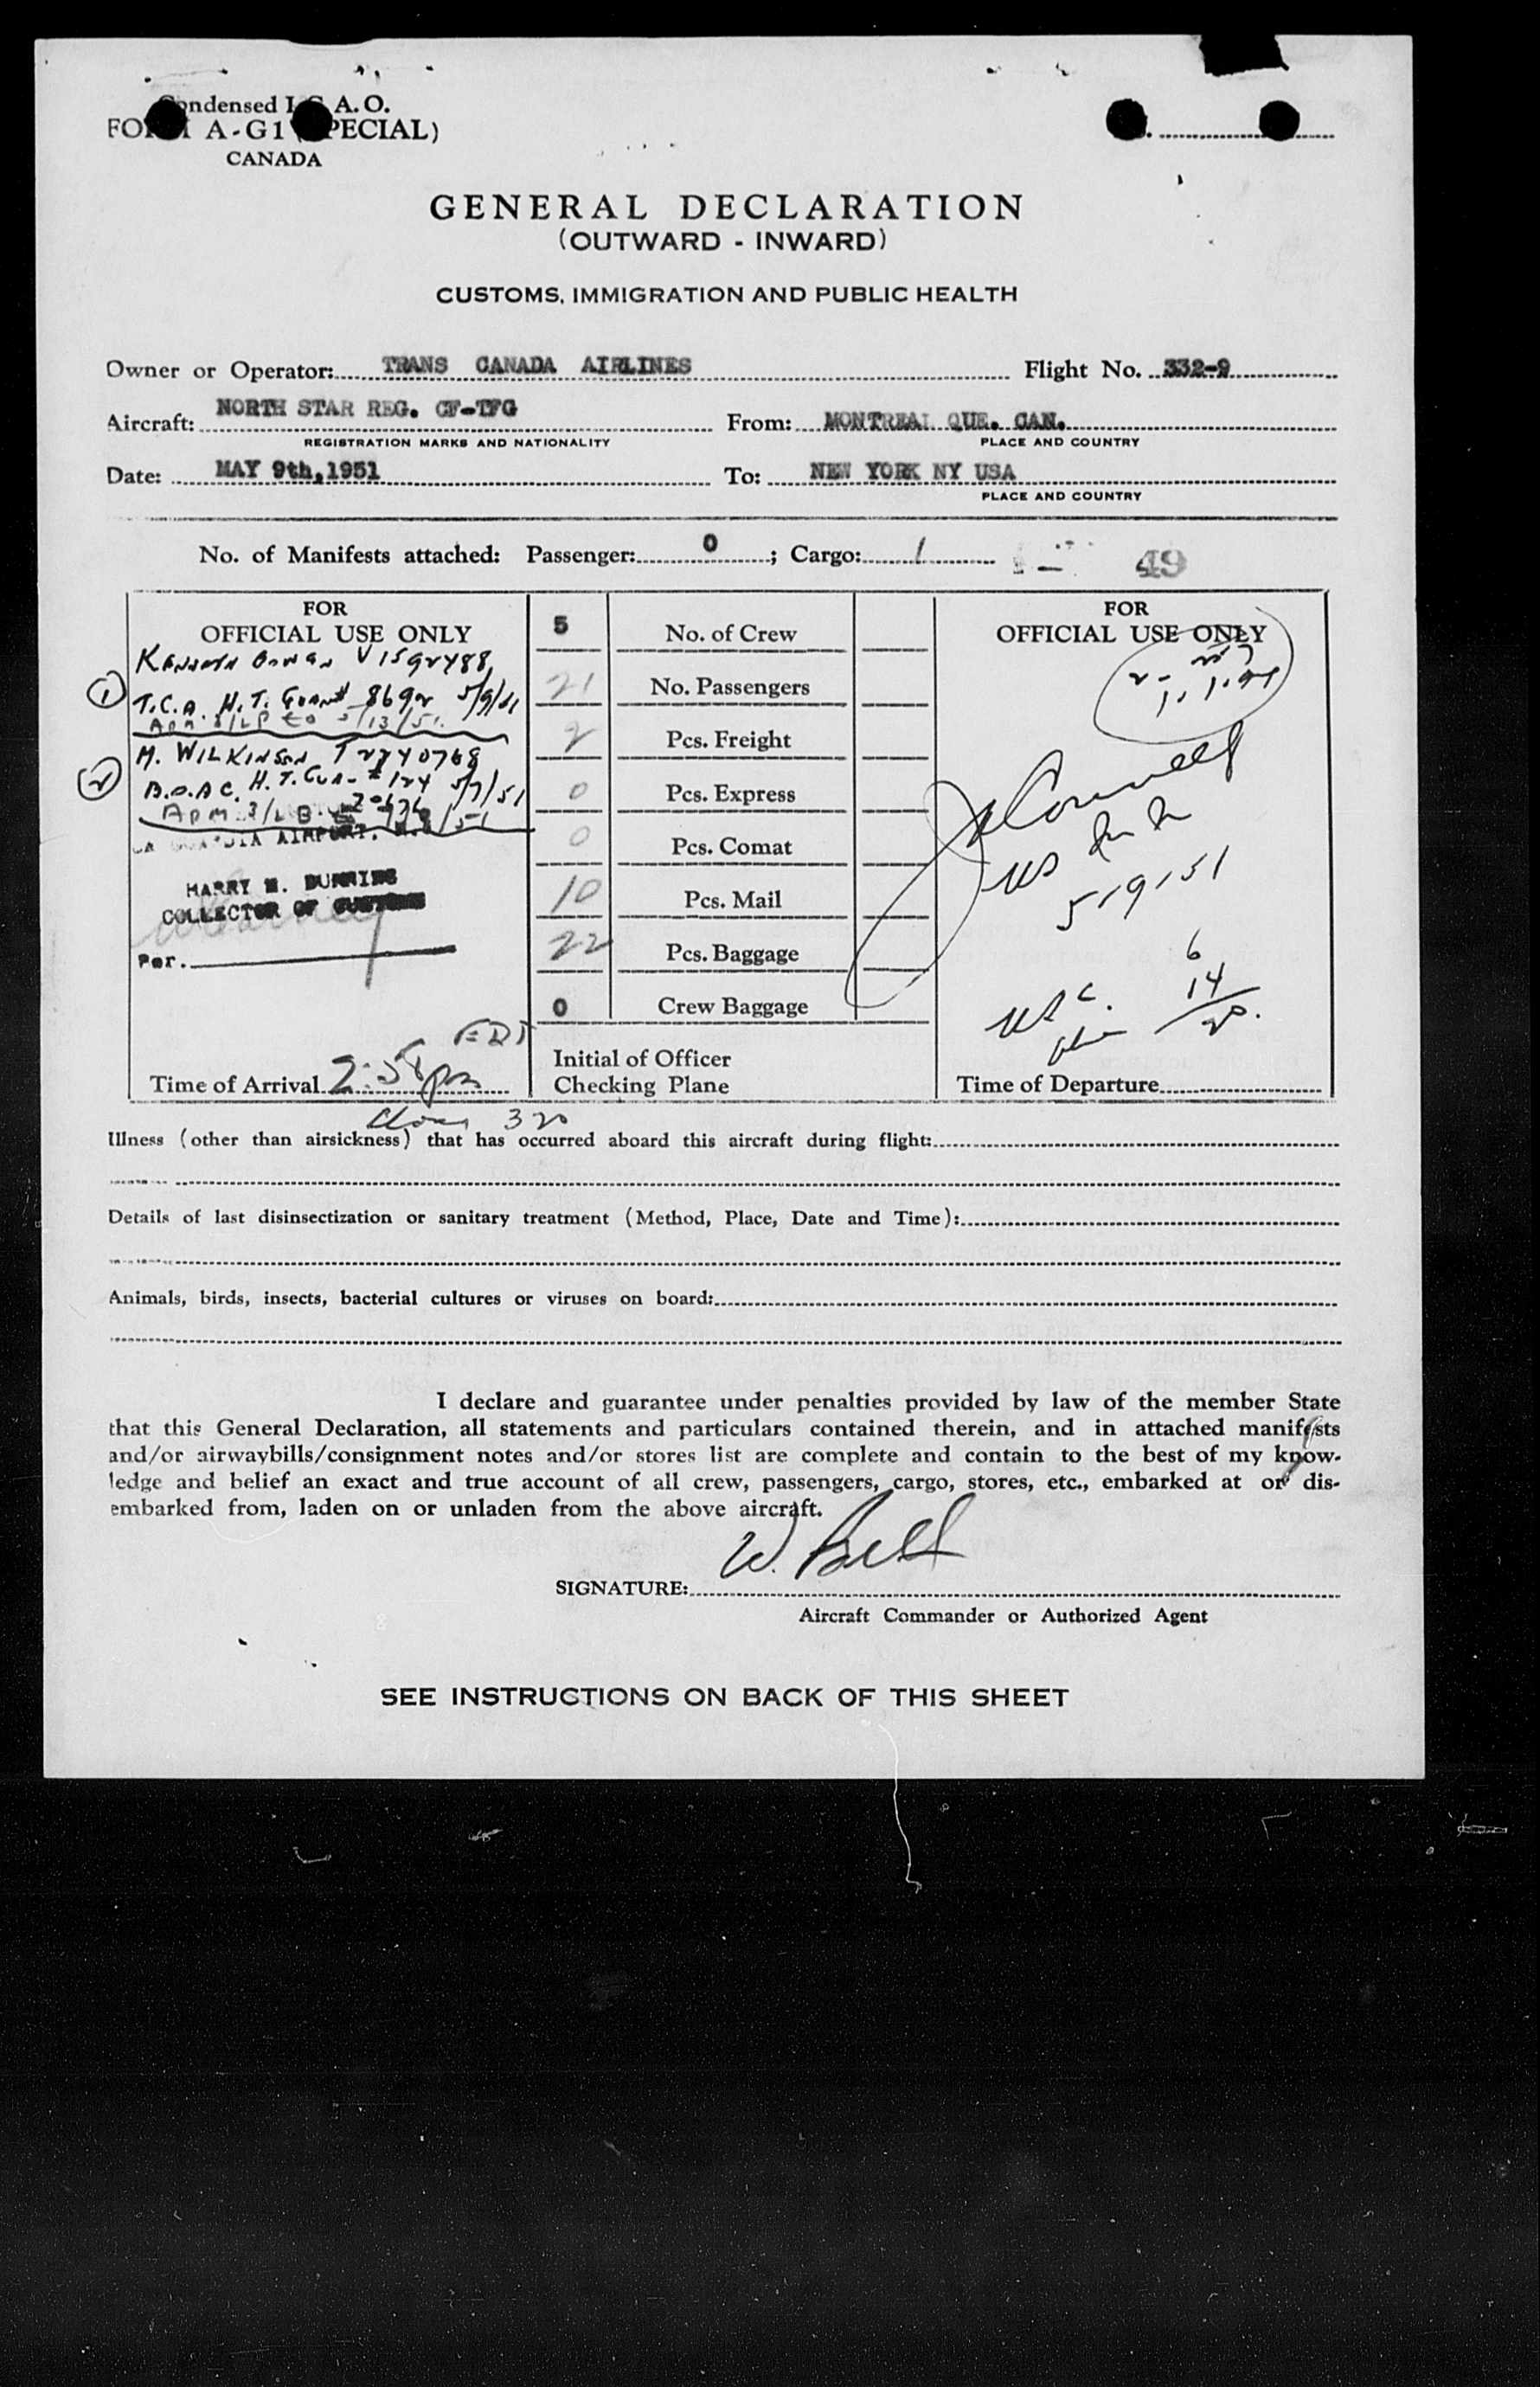 Condensed I.C.A.O.
FORM A-G1 (SPECIAL)
CANADA
GENERAL DECLARATION
(OUTWARD - INWARD)
CUSTOMS, IMMIGRATION AND PUBLIC HEALTH
Owner or Operator: TRANS CANADA AIRLINES Flight No. 332-9
Aircraft: NORTH STAR REG. CF-TFG From: MONTREAL QUE. CAN.
REGISTRATION MARKS AND NATIONALITY PLACE AND COUNTRY
Date: MAY 9th,1951 To: NEW YORK NY USA
PLACE AND COUNTRY
No. of Manifests attached: Passenger: 0 ; Cargo: 1
49
FOR
OFFICIAL USE ONLY
V1592488
1
T.C.A. H.T. 5/9/51
2
H. WILKINSON T2240768
B.O.A.C. H.T. 5/7/51
LA GUARDIA AIRPORT,
HARRY M.
COLLECTOR OF CUSTOMS
Per.
Time of Arrival 2:58 pm EDT
320
5 No. of Crew
21 No. Passengers
2 Pcs. Freight
0 Pcs. Express
0 Pcs. Comat
10 Pcs. Mail
22 Pcs. Baggage
0 Crew Baggage
Initial of Officer
Checking Plane
FOR
OFFICIAL USE ONLY
US
5/9/51
USC 6
14
20.
Time of Departure
Illness (other than airsickness) that has occurred aboard this aircraft during flight:
Details of last disinsectization or sanitary treatment (Method, Place, Date and Time):
Animals, birds, insects, bacterial cultures or viruses on board:
I declare and guarantee under penalties provided by law of the member State
that this General Declaration, all statements and particulars contained therein, and in attached manifests
and/or airwaybills/consignment notes and/or stores list are complete and contain to the best of my know-
ledge and belief an exact and true account of all crew, passengers, cargo, stores, etc., embarked at or dis-
embarked from, laden on or unladen from the above aircraft.
SIGNATURE: W. Bell
Aircraft Commander or Authorized Agent
SEE INSTRUCTIONS ON BACK OF THIS SHEET